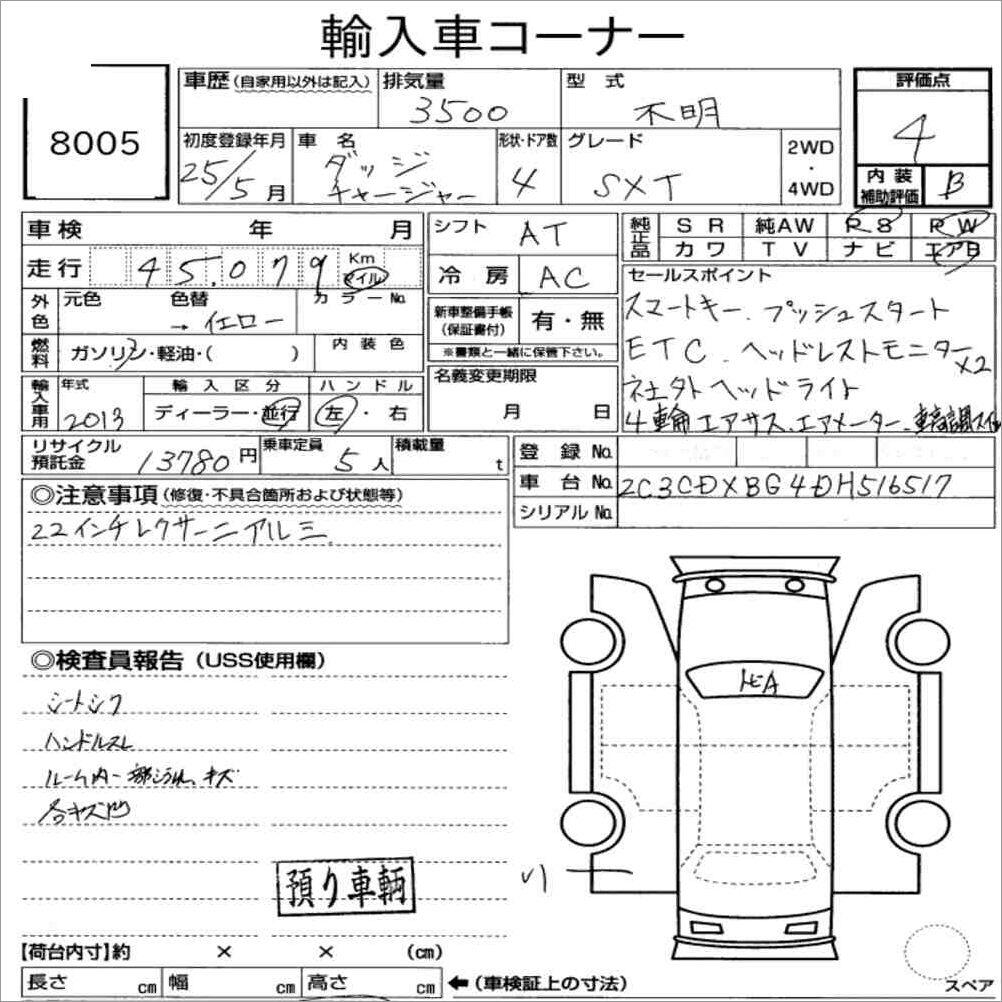 輸入車コーナー
8005
車歴 (自家用以外は記入)
排気量
3500
型 式
不明
評価点
4
初度登録年月
25/5月
車 名
ダッジ
チャージャー
形状・ドア数
4
グレード
SXT
2WD
・
4WD
内 装
補助評価
B
車検 年 月
走行 45,079 Km マイル
シフト AT
冷 房 AC
純正品
SR 純AW PS PW
カワ TV ナビ エアB
外色
元色 色替 カラーNo.
→ イエロー
燃料
ガソリン・軽油・( )
内 装 色
新車整備手帳
(保証書付)
有・無
※書類と一緒に保管下さい。
セールスポイント
スマートキー. プッシュスタート
ETC. ヘッドレストモニター×2
社外ヘッドライト
4輪エアサス.エアメーター.
輸入車用
年式
2013
輸 入 区 分
ディーラー・並行
ハ ン ド ル
左・右
名義変更期限
月 日
リサイクル
預託金
13780円
乗車定員
5人
積載量
t
登 録 No.
車 台 No. 2C3CDXBG4DH516517
シリアル No.
◎注意事項 (修復・不具合箇所および状態等)
22インチレクサーニアルミ
◎検査員報告 (USS使用欄)
シートシワ
ハンドルスレ
ルーム内一部汚れ、キズ
各キズ凹
預り車輌
【荷台内寸】約 × × (cm)
長さ cm 幅 cm 高さ cm ←(車検証上の寸法)
スペア